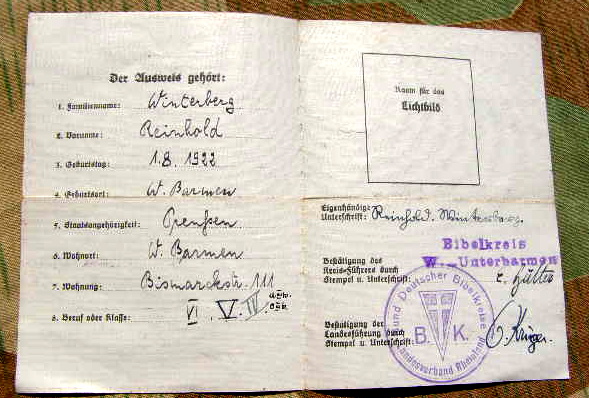 Der Ausweis gehört:
1. Familienname: Winterberg
2. Vorname: Reinhold
3. Geburtstag: 1.8.1922
4. Geburtsort: W. Barmen
5. Staatsangehörigkeit: Preußen
6. Wohnort: W. Barmen
7. Wohnung: Bismarckstr. 111
8. Beruf oder Klasse: VI. V. IV
Raum für das
Lichtbild
Eigenhändige
Unterschrift: Reinhold Winterberg.
Bibelkreis
W.-Unterbarmen
Bestätigung des
Kreis-Führers durch
Stempel u. Unterschrift:
Bund Deutscher Bibelkreise
B. K.
Landesverband Rheinland
Bestätigung der
Landesführung durch
Stempel u. Unterschrift: